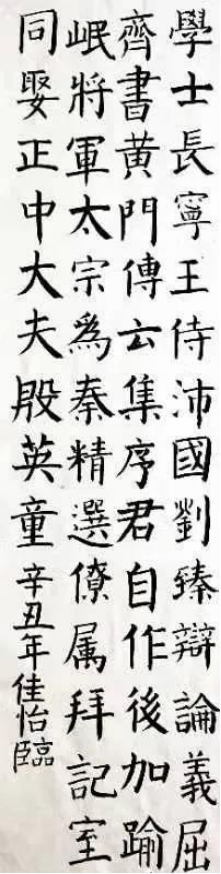 學士長寧王侍沛國劉臻辯論義屈
齊書黃門傳云集序君自作後加踰
岷將軍太宗為秦精選僚属拜記室
同娶正中大夫殷英童辛丑年佳怡臨